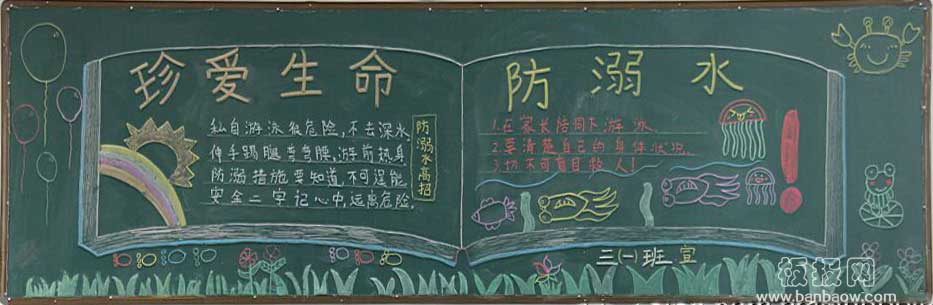 珍爱生命
私自游泳很危险,不去深水
伸手踢腿弯弯腰,游前热身
防溺措施要知道,不可逞能
安全二字记心中,远离危险.
防溺水高招
防溺水
1.在家长陪同下游泳
2.要清楚自己的身体状况.
3.切不可盲目救人!
三(一)班 宣
板报网
www.banbaow.com